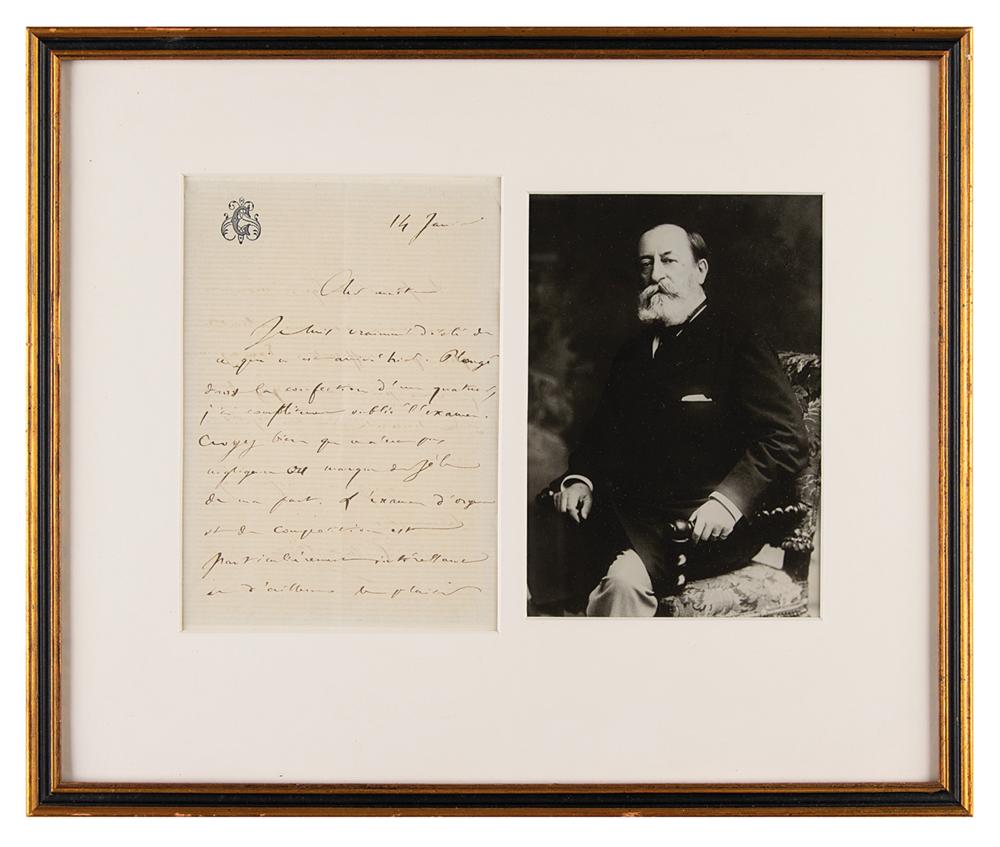 14 Janvier
Cher maître
Je suis vraiment désolé de
ce qui m'est arrivé hier. Plongé
dans la confection d'un quatuor,
j'ai complètement oublié l'examen.
Croyez bien que
négligence ou manque de zèle
de ma part. L'examen d'orgue
et de composition est
particulièrement intéressant
et d'ailleurs le plaisir